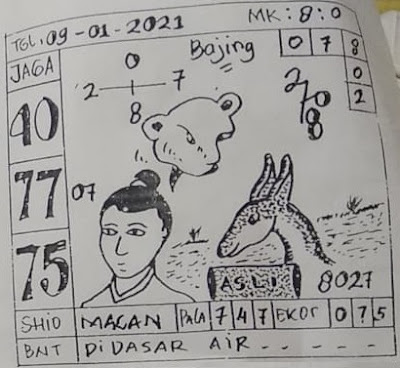 TGL: 09-01-2021
MK: 8:0
JAGA
40
77
75
0
2 7
8
07
Bajing
0 7 8
0
2
2
7
0
8
8
ASLI
8027
SHIO MACAN PALA 7 4 7 EKOR 0 7 5
BNT DIDASAR AIR - - - - -